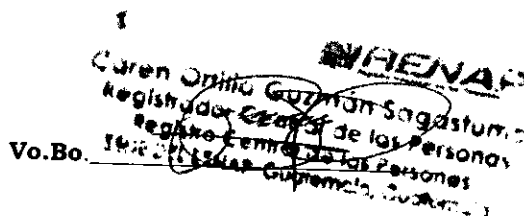 RENAP
Guzmán Sagastume
Registrador Central de las Personas
Registro Central de las Personas
Vo.Bo.
Guatemala, Guatemala